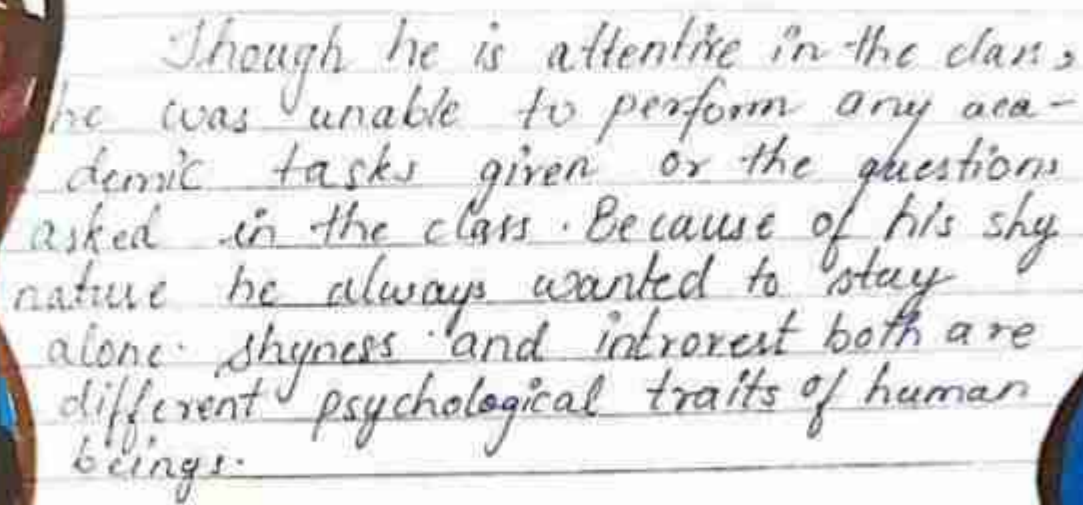 Though he is attentive in the class,
he was unable to perform any aca-
demic tasks given or the questions
asked in the class. Because of his shy
nature he always wanted to stay
alone. shyness and introvert both are
different psychological traits of human
beings.